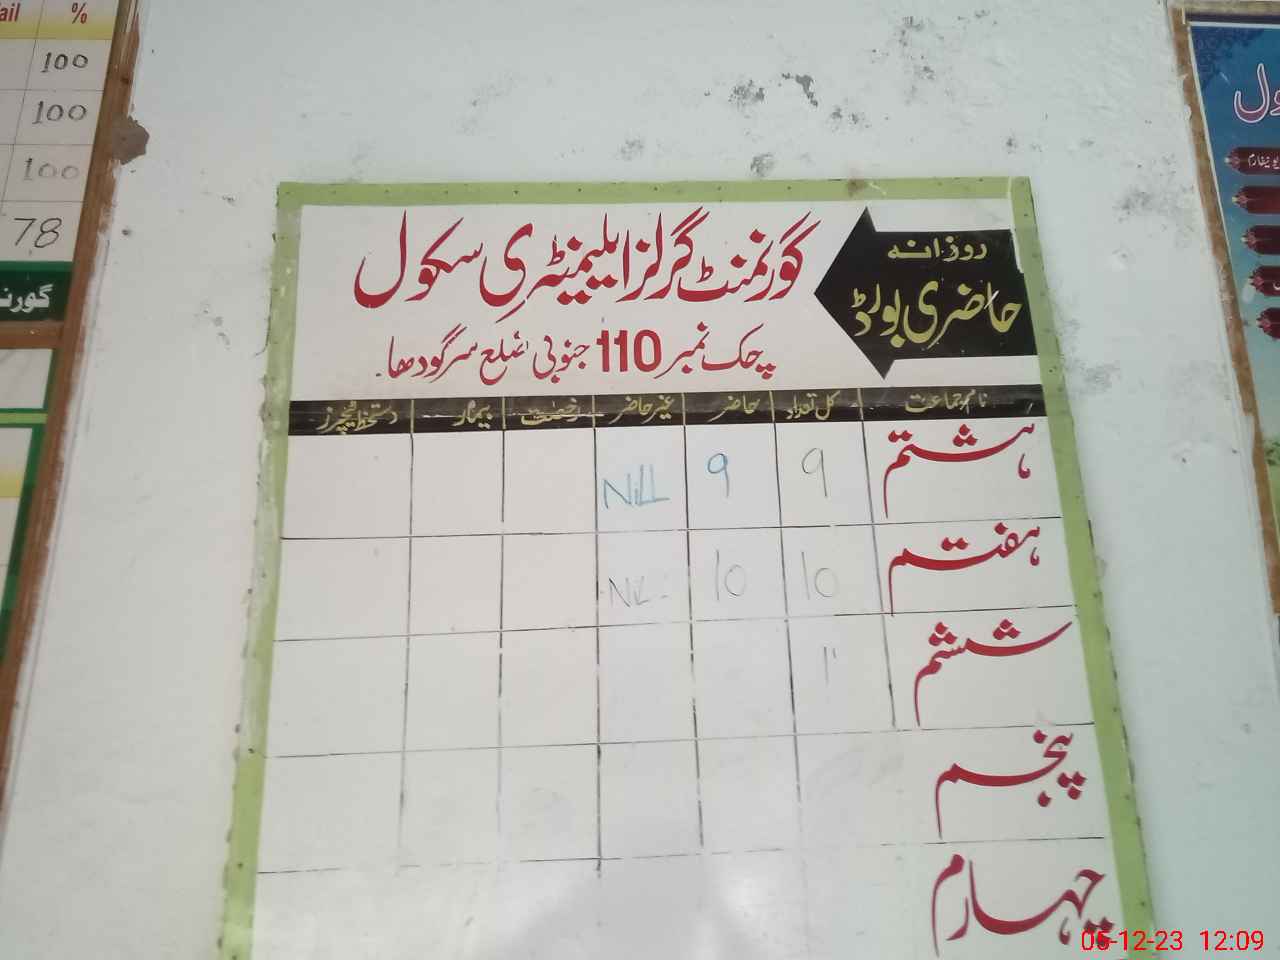 ail %
100
100
100
78
گورنمنٹ گرلز ایلیمنٹری سکول
چک نمبر 110 جنوبی ضلع سرگودھا.
روزانہ
حاضری بورڈ
نام جماعت کل تعداد حاضر غیر حاضر رخصت بیمار دستخط ٹیچرز
ہشتم 9 9 NiLL
ہفتم 10 10 NiL
ششم 11
پنجم
چہارم
یونیفارم
05-12-23 12:09